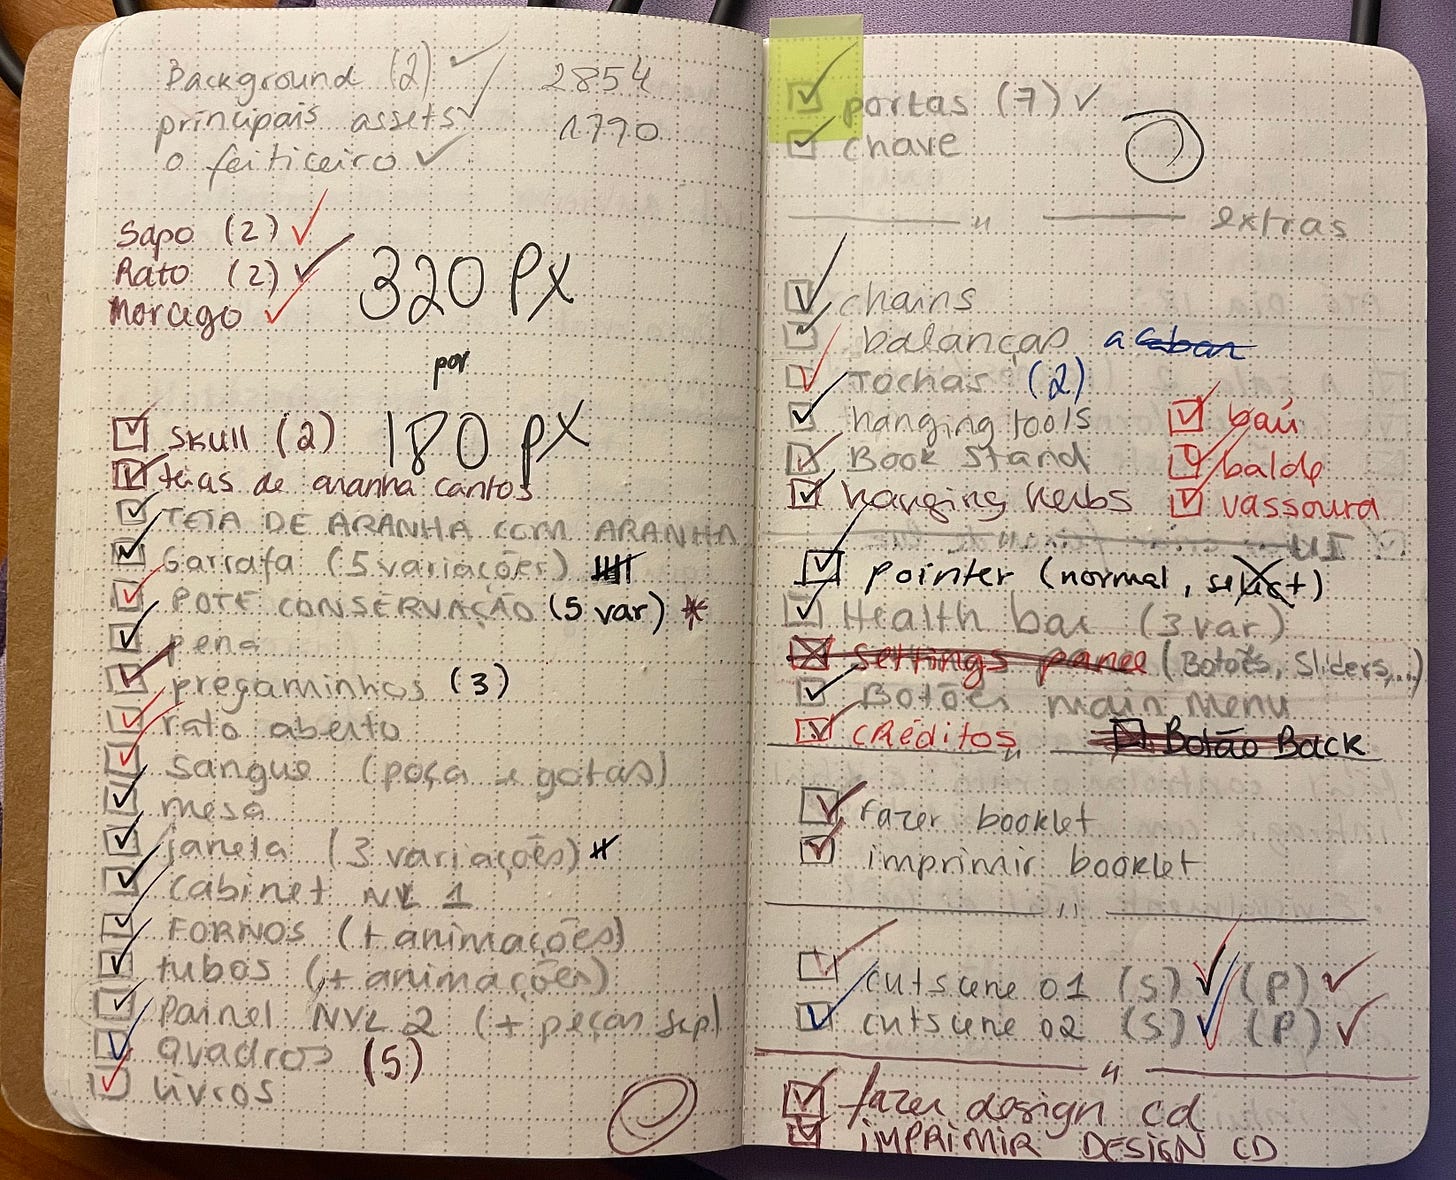 Background (2) 2854
principais assets 1770
o feiticeiro
Sapo (2)
Rato (2)
Morcego
320 px
por
180 px
skull (2)
teias de aranha cantos
TEIA DE ARANHA COM ARANHA
Garrafa (5 variações)
POTE CONSERVAÇÃO (5 var) *
pena
pregaminhos (3)
rato aberto
sangue (poça e gotas)
mesa
janela (3 variações)
cabinet NVL 1
FORNOS (+ animações)
tubos (+ animações)
Painel NVL 2 (+ peças sep)
quadros (5)
livros
portas (7)
chave
extras
chains
balanças acabar
Tochas (2)
hanging tools
Book Stand
hanging herbs
baú
balde
vassoura
pointer (normal, select)
Health bar (3 var)
Settings panel (Botões, Sliders,...)
Botões main menu
créditos
Botão Back
fazer booklet
imprimir booklet
cutscene 01 (S) (P)
cutscene 02 (S) (P)
fazer design cd
IMPRIMIR DESIGN CD